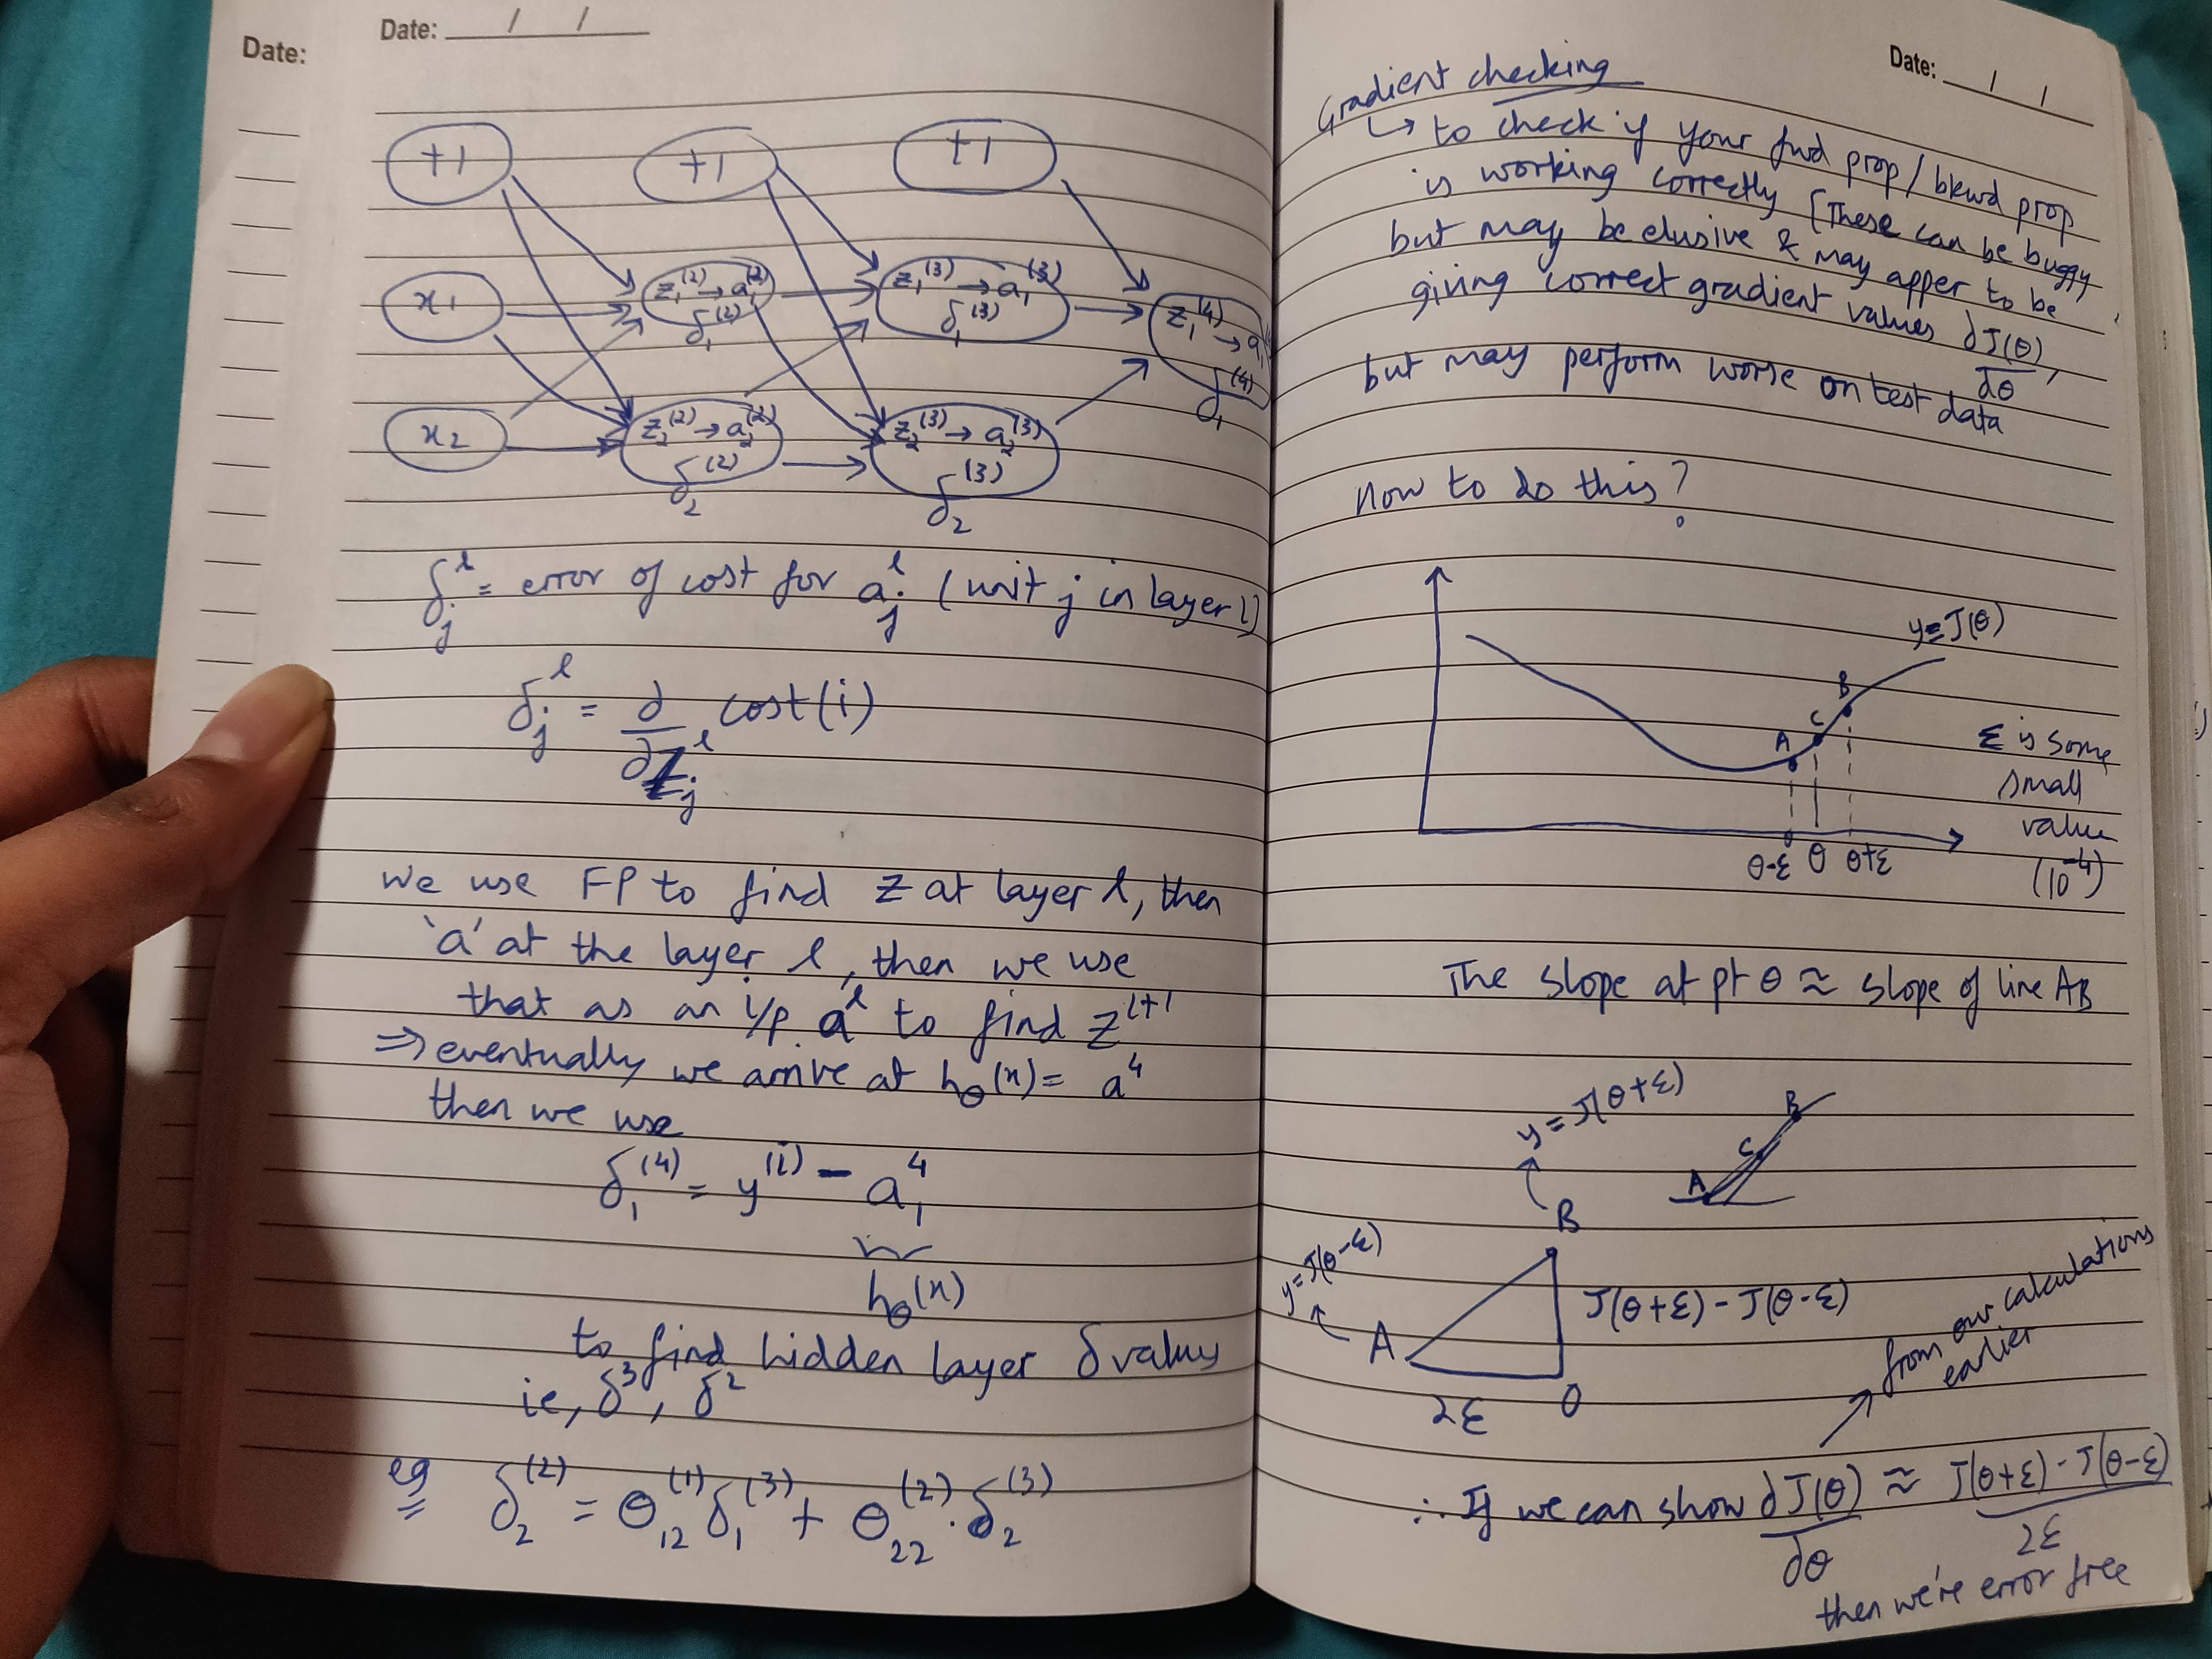 Date:
Date: / /
+1 +1 +1
x₁ z₁⁽²⁾ → a₁⁽²⁾ z₁⁽³⁾ → a₁⁽³⁾ z₁⁽⁴⁾ → a₁
δ₁⁽²⁾ δ₁⁽³⁾ δ₁⁽⁴⁾
x₂ z₂⁽²⁾ → a₂⁽²⁾ z₂⁽³⁾ → a₂⁽³⁾
δ₂⁽²⁾ δ₂⁽³⁾
δⱼˡ = error of cost for aⱼˡ (unit j in layer l)
δⱼˡ = ∂/∂zⱼˡ cost(i)
we use FP to find z at layer l, then
'a' at the layer l, then we use
that as an i/p aˡ to find zˡ⁺¹
⇒ eventually we arrive at hθ(x) = a⁴
then we use
δ₁⁽⁴⁾ = y⁽ⁱ⁾ - a₁⁴
hθ(x)
to find hidden layer δ values
ie, δ³, δ²
eg δ₂⁽²⁾ = θ₁₂⁽¹⁾ δ₁⁽³⁾ + θ₂₂⁽²⁾ . δ₂⁽³⁾
Date: / /
Gradient checking
↳ to check if your fwd prop / bkwd prop
is working correctly [These can be buggy
but may be elusive & may apper to be
giving correct gradient values ∂J(θ)/∂θ,
but may perform worse on test data
How to do this?
y = J(θ)
A C B
θ-ε θ θ+ε
ε is some
small
value
(10⁻⁴)
The slope at pt θ ≈ slope of line AB
y = J(θ+ε)
A C B
B
y = J(θ-ε)
A
J(θ+ε) - J(θ-ε)
2ε O
from our calculations
earlier
∴ If we can show ∂J(θ)/∂θ ≈ J(θ+ε) - J(θ-ε)/2ε
then we're error free